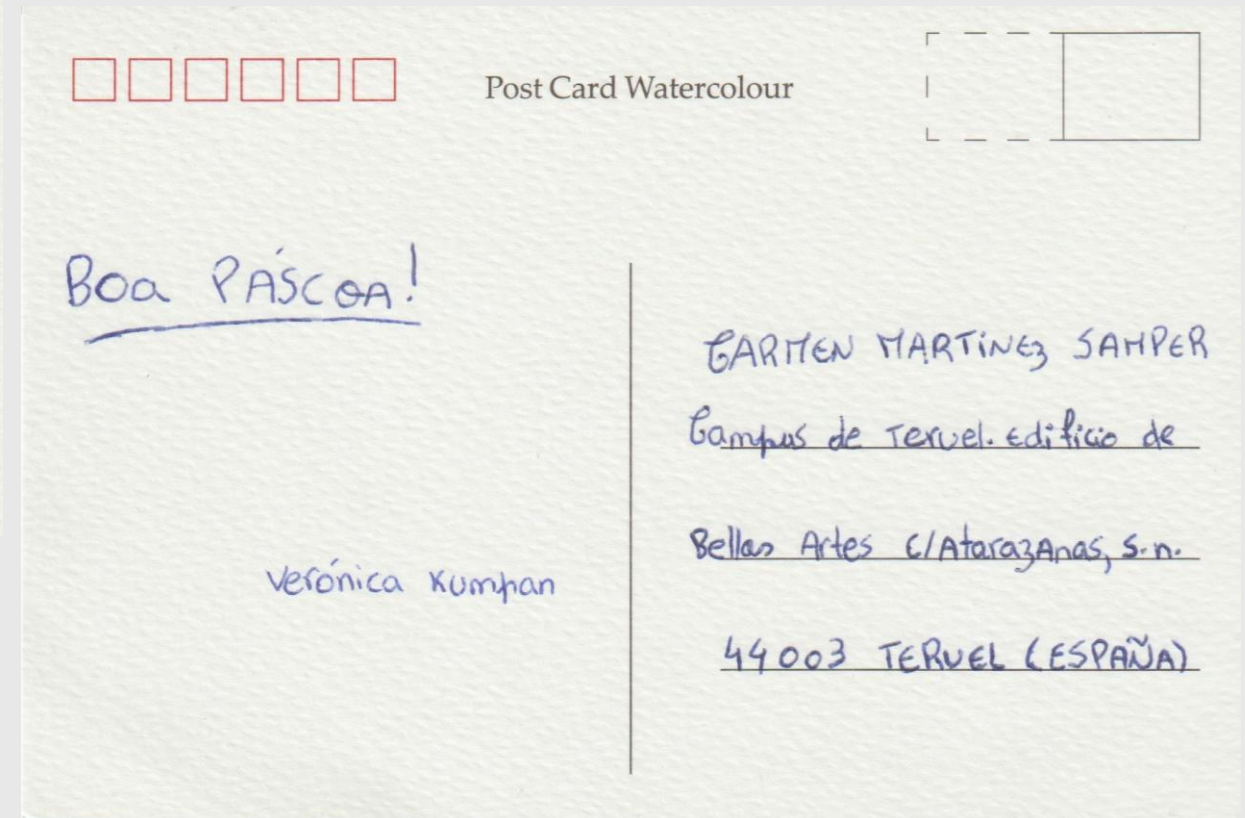 Post Card Watercolour
BOa PÁSCOA!
Verónica Kumpan
CARMEN MARTiNEz SAMPER
Campus de Teruel. Edificio de
Bellas Artes C/AtarazAnas, s.n.
44003 TERUEL (ESPAÑA)